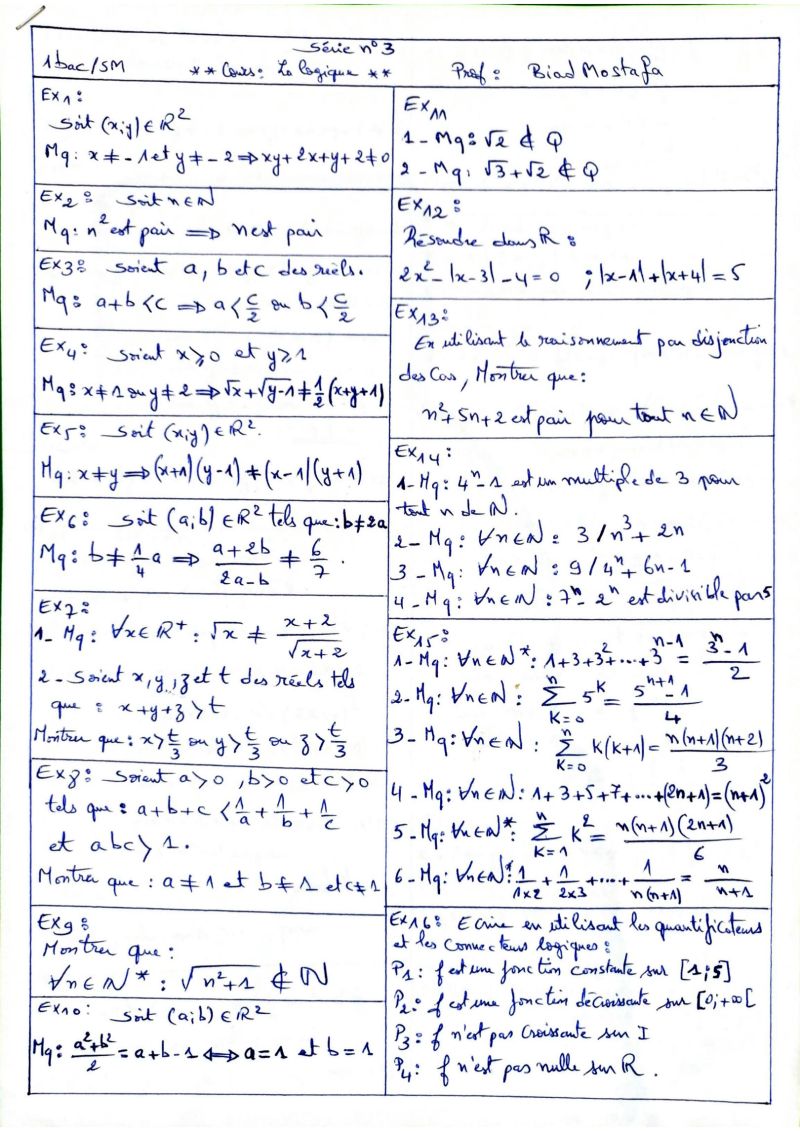 Série n° 3
1bac/SM ** Cours: La logique ** Prof: Biad Mostafa
Ex1:
Soit (x;y) ∈ ℝ²
Mq: x ≠ -1 et y ≠ -2 ⇒ xy + 2x + y + 2 ≠ 0
Ex2: Soit n ∈ ℕ
Mq: n² est pair ⇒ n est pair
Ex3: Soient a, b et c des réels.
Mq: a+b < c ⇒ a < c/2 ou b < c/2
Ex4: Soient x ≥ 0 et y ≥ 1
Mq: x ≠ 1 ou y ≠ 2 ⇒ √x + √(y-1) ≠ 1/2 (x+y+1)
Ex5: Soit (x;y) ∈ ℝ².
Mq: x ≠ y ⇒ (x+1)(y-1) ≠ (x-1)(y+1)
Ex6: Soit (a;b) ∈ ℝ² tels que: b ≠ 2a
Mq: b ≠ 1/4 a ⇒ (a+2b)/(2a-b) ≠ 6/7.
Ex7:
1- Mq: ∀x ∈ ℝ⁺: √x ≠ (x+2)/√(x+2)
2- Soient x, y, z et t des réels tels
que: x+y+z > t
Montrer que: x > t/3 ou y > t/3 ou z > t/3
Ex8: Soient a > 0, b > 0 et c > 0
tels que: a+b+c < 1/a + 1/b + 1/c
et abc > 1.
Montrer que: a ≠ 1 et b ≠ 1 et c ≠ 1
Ex9:
Montrer que:
∀n ∈ ℕ*: √(n²+1) ∉ ℕ
Ex10: Soit (a;b) ∈ ℝ²
Mq: (a²+b²)/2 = a+b-1 ⇔ a=1 et b=1
Ex11
1- Mq: √2 ∉ Q
2- Mq: √3+√2 ∉ Q
Ex12:
Résoudre dans ℝ:
2x² - |x-3| - 4 = 0 ; |x-1| + |x+4| = 5
Ex13:
En utilisant le raisonnement par disjonction
des Cas, Montrer que:
n² + 5n + 2 est pair pour tout n ∈ ℕ
Ex14:
1- Mq: 4ⁿ - 1 est un multiple de 3 pour
tout n de ℕ.
2- Mq: ∀n ∈ ℕ: 3 / n³ + 2n
3- Mq: ∀n ∈ ℕ: 9 / 4ⁿ + 6n - 1
4- Mq: ∀n ∈ ℕ: 7ⁿ - 2ⁿ est divisible par 5
Ex15:
1- Mq: ∀n ∈ ℕ*: 1+3+3²+...+3ⁿ⁻¹ = (3ⁿ-1)/2
2- Mq: ∀n ∈ ℕ: Σ(K=0 → n) 5ᴷ = (5ⁿ⁺¹-1)/4
3- Mq: ∀n ∈ ℕ: Σ(K=0 → n) K(K+1) = n(n+1)(n+2)/3
4- Mq: ∀n ∈ ℕ: 1+3+5+7+...+(2n+1) = (n+1)²
5- Mq: ∀n ∈ ℕ*: Σ(K=1 → n) K² = n(n+1)(2n+1)/6
6- Mq: ∀n ∈ ℕ*: 1/(1×2) + 1/(2×3) + ... + 1/(n(n+1)) = n/(n+1)
Ex16: Ecrire en utilisant les quantificateurs
et les connecteurs logiques:
P₁: f est une fonction constante sur [1;5]
P₂: f est une fonction décroissante sur [0;+∞[
P₃: f n'est pas croissante sur I
P₄: f n'est pas nulle sur ℝ.